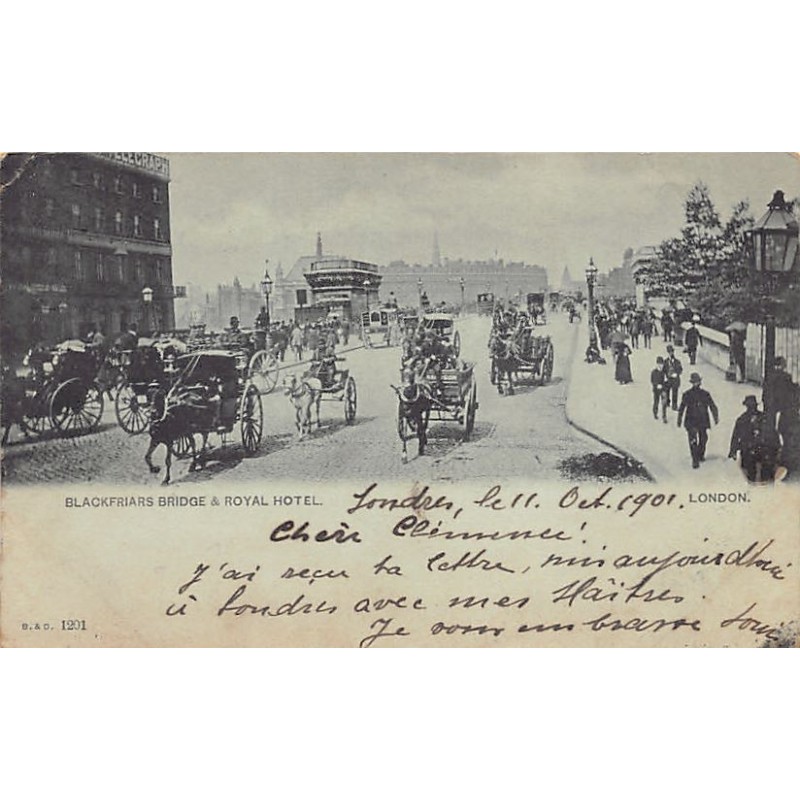 TELEGRAPH
BLACKFRIARS BRIDGE & ROYAL HOTEL.
LONDON.
Londres, le 11. Oct. 1901.
Chèrie Clémence!
J'ai reçu ta lettre, suis aujourd'hui
à Londres avec mes Maîtres.
Je vous embrasse
B. & D. 1291